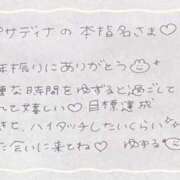 サディナの本指名さま♡
年振りにありがとう
な時間をゆずると過ごして
れて嬉しい♡目標達成
きて、ハイタッチしたいくらい
た会いに来てね♡ ゆずる